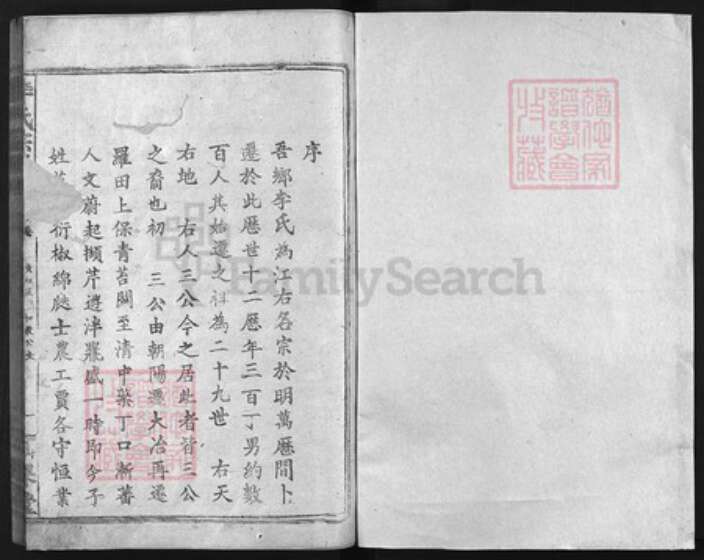 序
吾鄉李氏為江右名宗於明萬厯間卜
遷於此厯世十二厯年三百丁男約數
百人其始遷之祖為二十九世 右天
右地 右人三公今之居此者皆三公
之裔也初 三公由朝陽遷大冶再遷
羅田上保青苔關至清中葉丁口漸蕃
人文蔚起擷芹遊泮濟盛一時即今子
姓 衍椒綿瓞士農工賈各守恒業
FamilySearch
譜學會
收藏